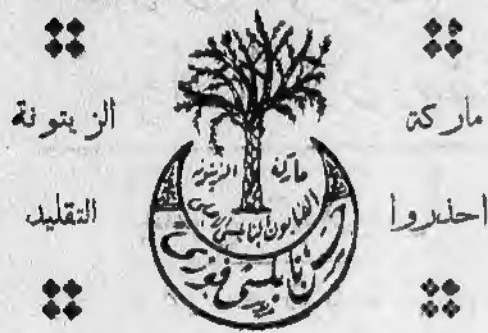 ماركة الزيتونة
احذروا التقليد
ماركة الزيتونة
الصابون النابلسي
نابلسي فوزي